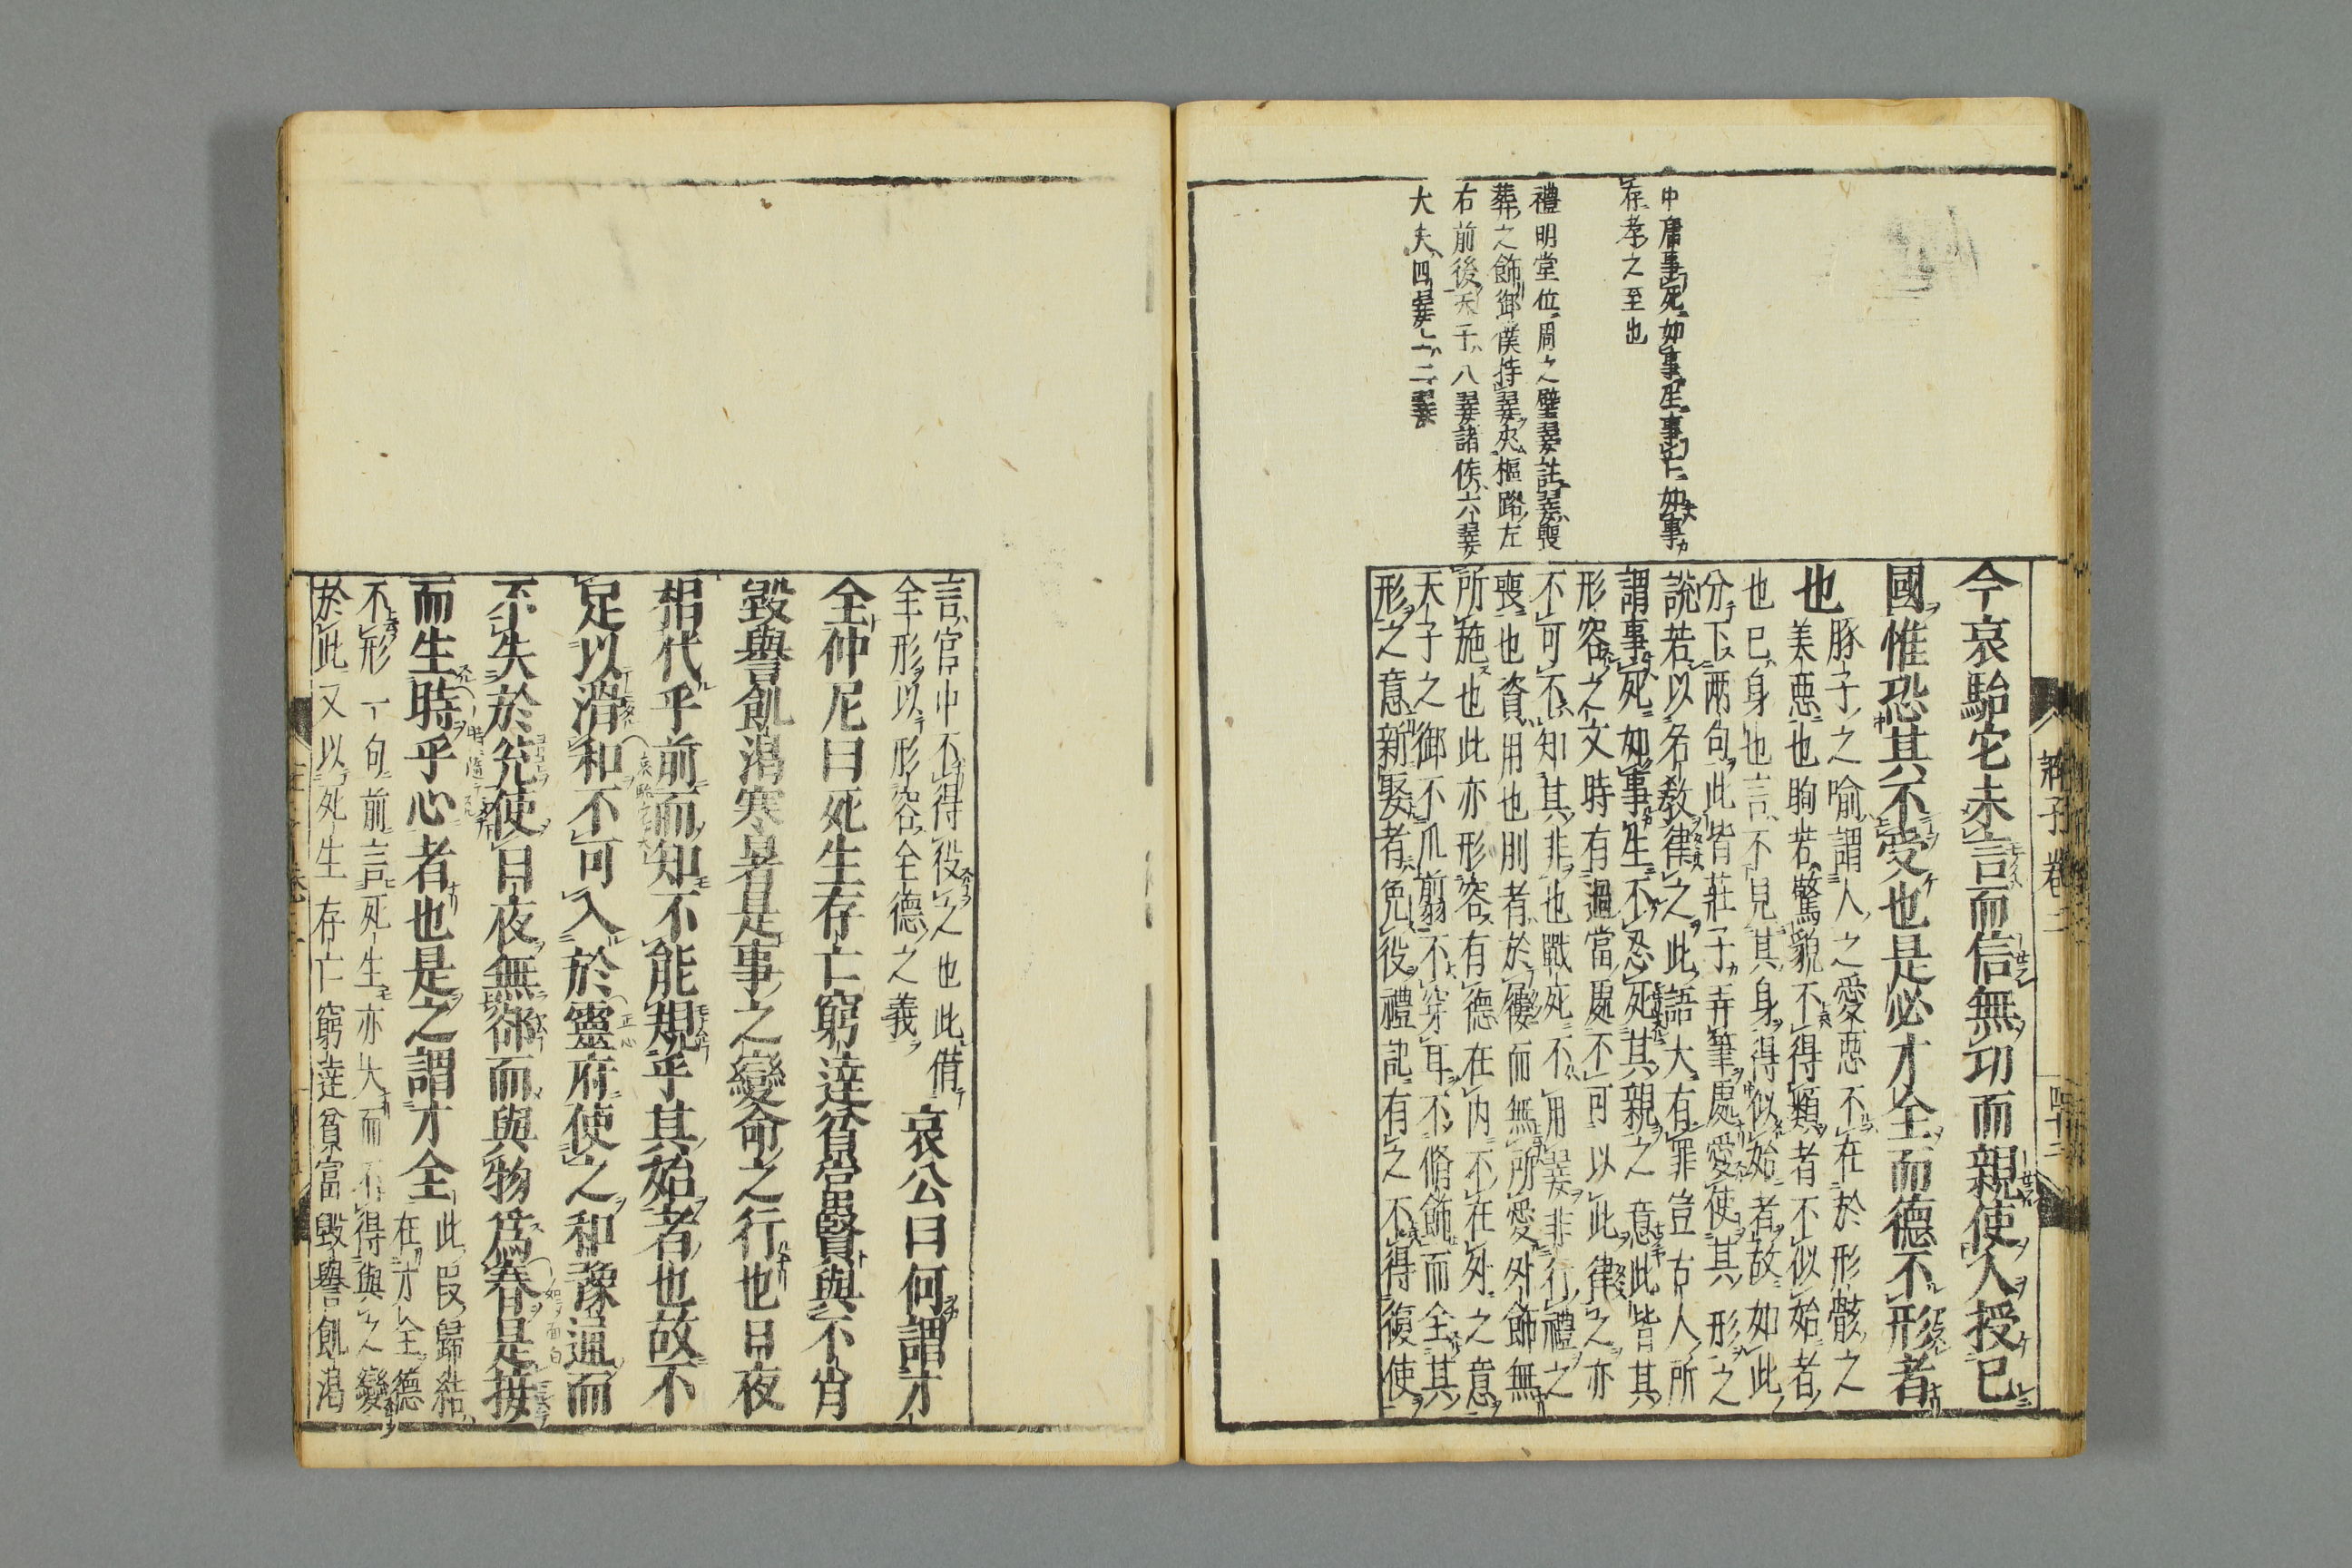 中庸事死如事生事亡如事
存孝之至也
禮明堂位周之璧翣註翣喪
葬之飾御僕持翣夾柩路左
右前後天子八翣諸侯六翣
大夫四翣士二翣
今哀駘它未言而信無功而親使人授已
國惟恐其不受也是必才全而德不形者
也
豚子之喻謂人之愛惡不在於形骸之
美惡也眴若驚貌不得類者不似始者
也已身也言不見其身得似始者故如此
分下兩句此皆莊子弄筆處愛使其形之
說若以名教律之此語大有罪豈古人所
謂事死如事生不忍死其親之意此皆其
形容之文時有過當處不可以此律之亦
不可不知其非也戰死不用翣非行禮之
喪也資用也刖者於屨而無所愛外飾無
所施也此亦形容有德在内不在外之意
天子之御不爪翦不穿耳不脩飾而全其
形之意新娶者免役禮記有之不得復使
莊子卷二
四十三
言官中不得役之也此借
全形以形容全德之義
哀公曰何謂才
全仲尼曰死生存亡窮達貧富賢與不肖
毀譽飢渴寒暑是事之變命之行也日夜
相代乎前而知不能規乎其始者也故不
足以滑和不可入於靈府使之和豫通而
不失於兊使日夜無郤而與物爲春是接
而生時乎心者也是之謂才全
此段歸結
在才全德
不形一句前言死生亦大而不得與之變
於此又以死生存亡窮達貧富毀譽飢渴